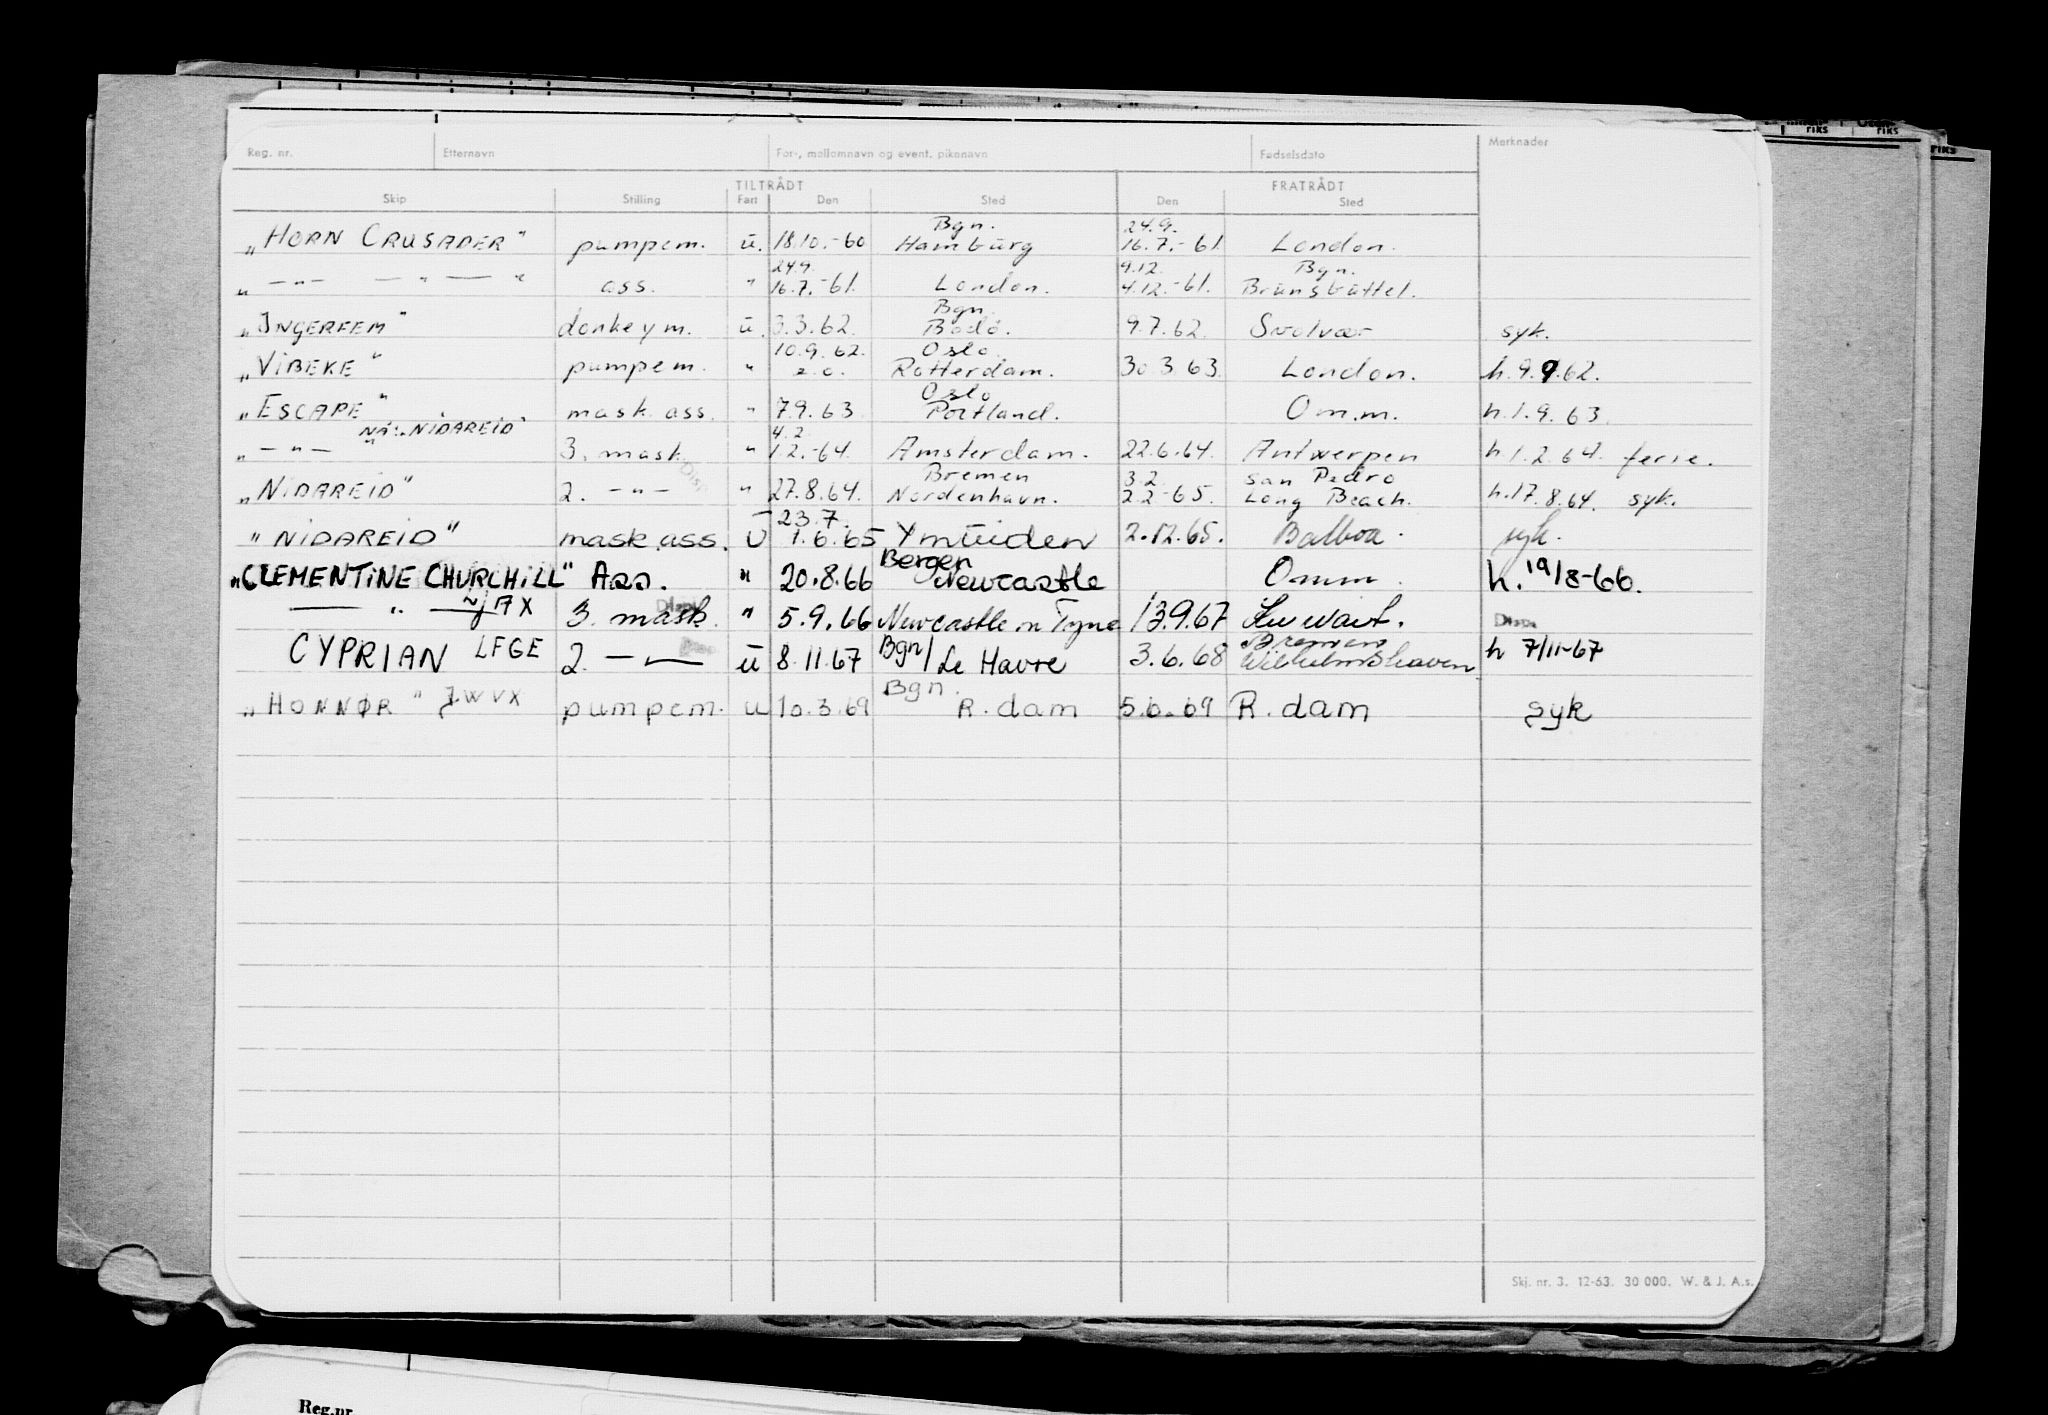 Reg. nr. Etternavn For-, mellomnavn og event. pikenavn Fødselsdato Merknader
TILTRÅDT FRATRÅDT
Skip Stilling Fart Den Sted Den Sted
Bgn. 24.9.
„HORN CRUSADER" pumpem. ü. 18.10.-60 Hamburg 16.7.-61 London.
24.9. 9.12. Bgn.
„ -"- — " — " ass. " 16.7.-61. London. 4.12.-61. Brünsbüttel.
Bgn.
„INGERFEM" donkeym. ü. 3.3.62. Bodö. 9.7.62. Svolvær syk.
10.9.62. Oslo
„VIBEKE" pumpem. " Rotterdam. 30.3.63. London. h.9.9.62.
Oslo
„ESCAPE" mask.ass. " 7.9.63 Portland. Om.m. h.1.9.63
NÅ: „NIDAREID" 4.2
„ -"- 3. mask. " 1.2.-64. Amsterdam. 22.6.64. Antwerpen h.1.2.64. ferie.
Bremen 3.2. San Pedro
„NIDAREID" 2. -"- " 27.8.64. Nordenhavn. 2.2-65. Long Beach. h.17.8.64. syk.
23.7.
"NIDAREID" mask.ass. Ü 1.6.65 Ymüiden 2.12.65. Balboa. syk.
Bergen
„CLEMENTINE CHURCHILL" Ass. " 20.8.66 Newcastle Omm. h. 19/8-66.
— " — 3. mask. " 5.9.66 Newcastle on Tyne 13.9.67 Kuwait.
Bgn/ Bremen
CYPRIAN LFGE 2. -"- ü 8.11.67 Le Havre 3.6.68 Wilhelmshaven h 7/11-67
Bgn.
„HONNØR" JWVX pumpem. u 10.3.69 R.dam 5.6.69 R.dam syk
Skj. nr. 3. 12-63. 30 000. W. & J. A.s.
Reg.nr.